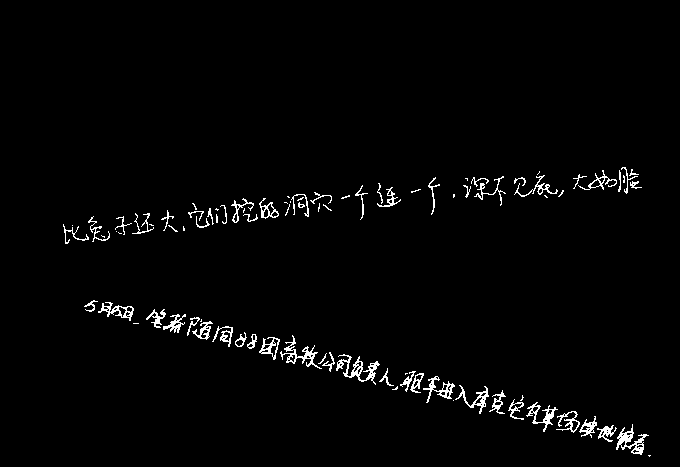 比兔子还大,它们挖的洞穴一个连一个,深不见底,大如脸
5月6日,笔者随同88团畜牧公司负责人,驱车进入库克它瓦草场实地察看.